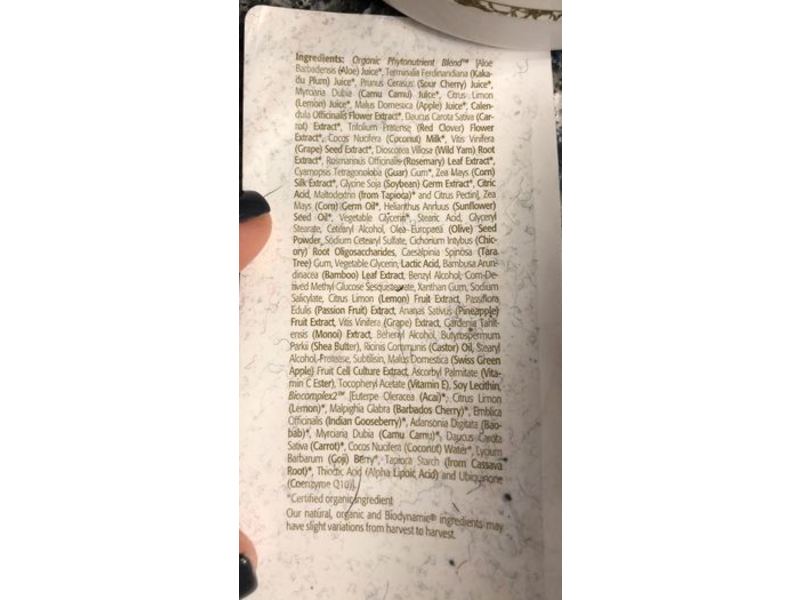 Ingredients: Organic Phytonutrient Blend™ [Aloe
Barbadensis (Aloe) Juice*, Terminalia Ferdinandiana (Kaka-
du Plum) Juice*, Prunus Cerasus (Sour Cherry) Juice*,
Myrciaria Dubia (Camu Camu) Juice*, Citrus Limon
(Lemon) Juice*, Malus Domestica (Apple) Juice*, Calen-
dula Officinalis Flower Extract*, Daucus Carota Sativa (Car-
rot) Extract*, Trifolium Pratense (Red Clover) Flower
Extract*, Cocos Nucifera (Coconut) Milk*, Vitis Vinifera
(Grape) Seed Extract*, Dioscorea Villosa (Wild Yam) Root
Extract*, Rosmarinus Officinalis (Rosemary) Leaf Extract*,
Cyamopsis Tetragonoloba (Guar) Gum*, Zea Mays (Corn)
Silk Extract*, Glycine Soja (Soybean) Germ Extract*, Citric
Acid, Maltodextrin (from Tapioca)* and Citrus Pectin], Zea
Mays (Corn) Germ Oil*, Helianthus Annuus (Sunflower)
Seed Oil*, Vegetable Glycerin*, Stearic Acid, Glyceryl
Stearate, Cetearyl Alcohol, Olea Europaea (Olive) Seed
Powder, Sodium Cetearyl Sulfate, Cichorium Intybus (Chic-
ory) Root Oligosaccharides, Caesalpinia Spinosa (Tara
Tree) Gum, Vegetable Glycerin, Lactic Acid, Bambusa Arun-
dinacea (Bamboo) Leaf Extract, Benzyl Alcohol, Corn-De-
rived Methyl Glucose Sesquistearate, Xanthan Gum, Sodium
Salicylate, Citrus Limon (Lemon) Fruit Extract, Passiflora
Edulis (Passion Fruit) Extract, Ananas Sativus (Pineapple)
Fruit Extract, Vitis Vinifera (Grape) Extract, Gardenia Tahit-
ensis (Monoi) Extract, Behenyl Alcohol, Butyrospermum
Parkii (Shea Butter), Ricinis Communis (Castor) Oil, Stearyl
Alcohol, Protease, Subtilisin, Malus Domestica (Swiss Green
Apple) Fruit Cell Culture Extract, Ascorbyl Palmitate (Vita-
min C Ester), Tocopheryl Acetate (Vitamin E), Soy Lecithin,
Biocomplex2™ [Euterpe Oleracea (Acai)*, Citrus Limon
(Lemon)*, Malpighia Glabra (Barbados Cherry)*, Emblica
Officinalis (Indian Gooseberry)*, Adansonia Digitata (Bao-
bab)*, Myrciaria Dubia (Camu Camu)*, Daucus Carota
Sativa (Carrot)*, Cocos Nucifera (Coconut) Water*, Lycium
Barbarum (Goji) Berry*, Tapioca Starch (from Cassava
Root)*, Thioctic Acid (Alpha Lipoic Acid) and Ubiquinone
(Coenzyme Q10)].
*Certified organic ingredient
Our natural, organic and Biodynamic® ingredients may
have slight variations from harvest to harvest.